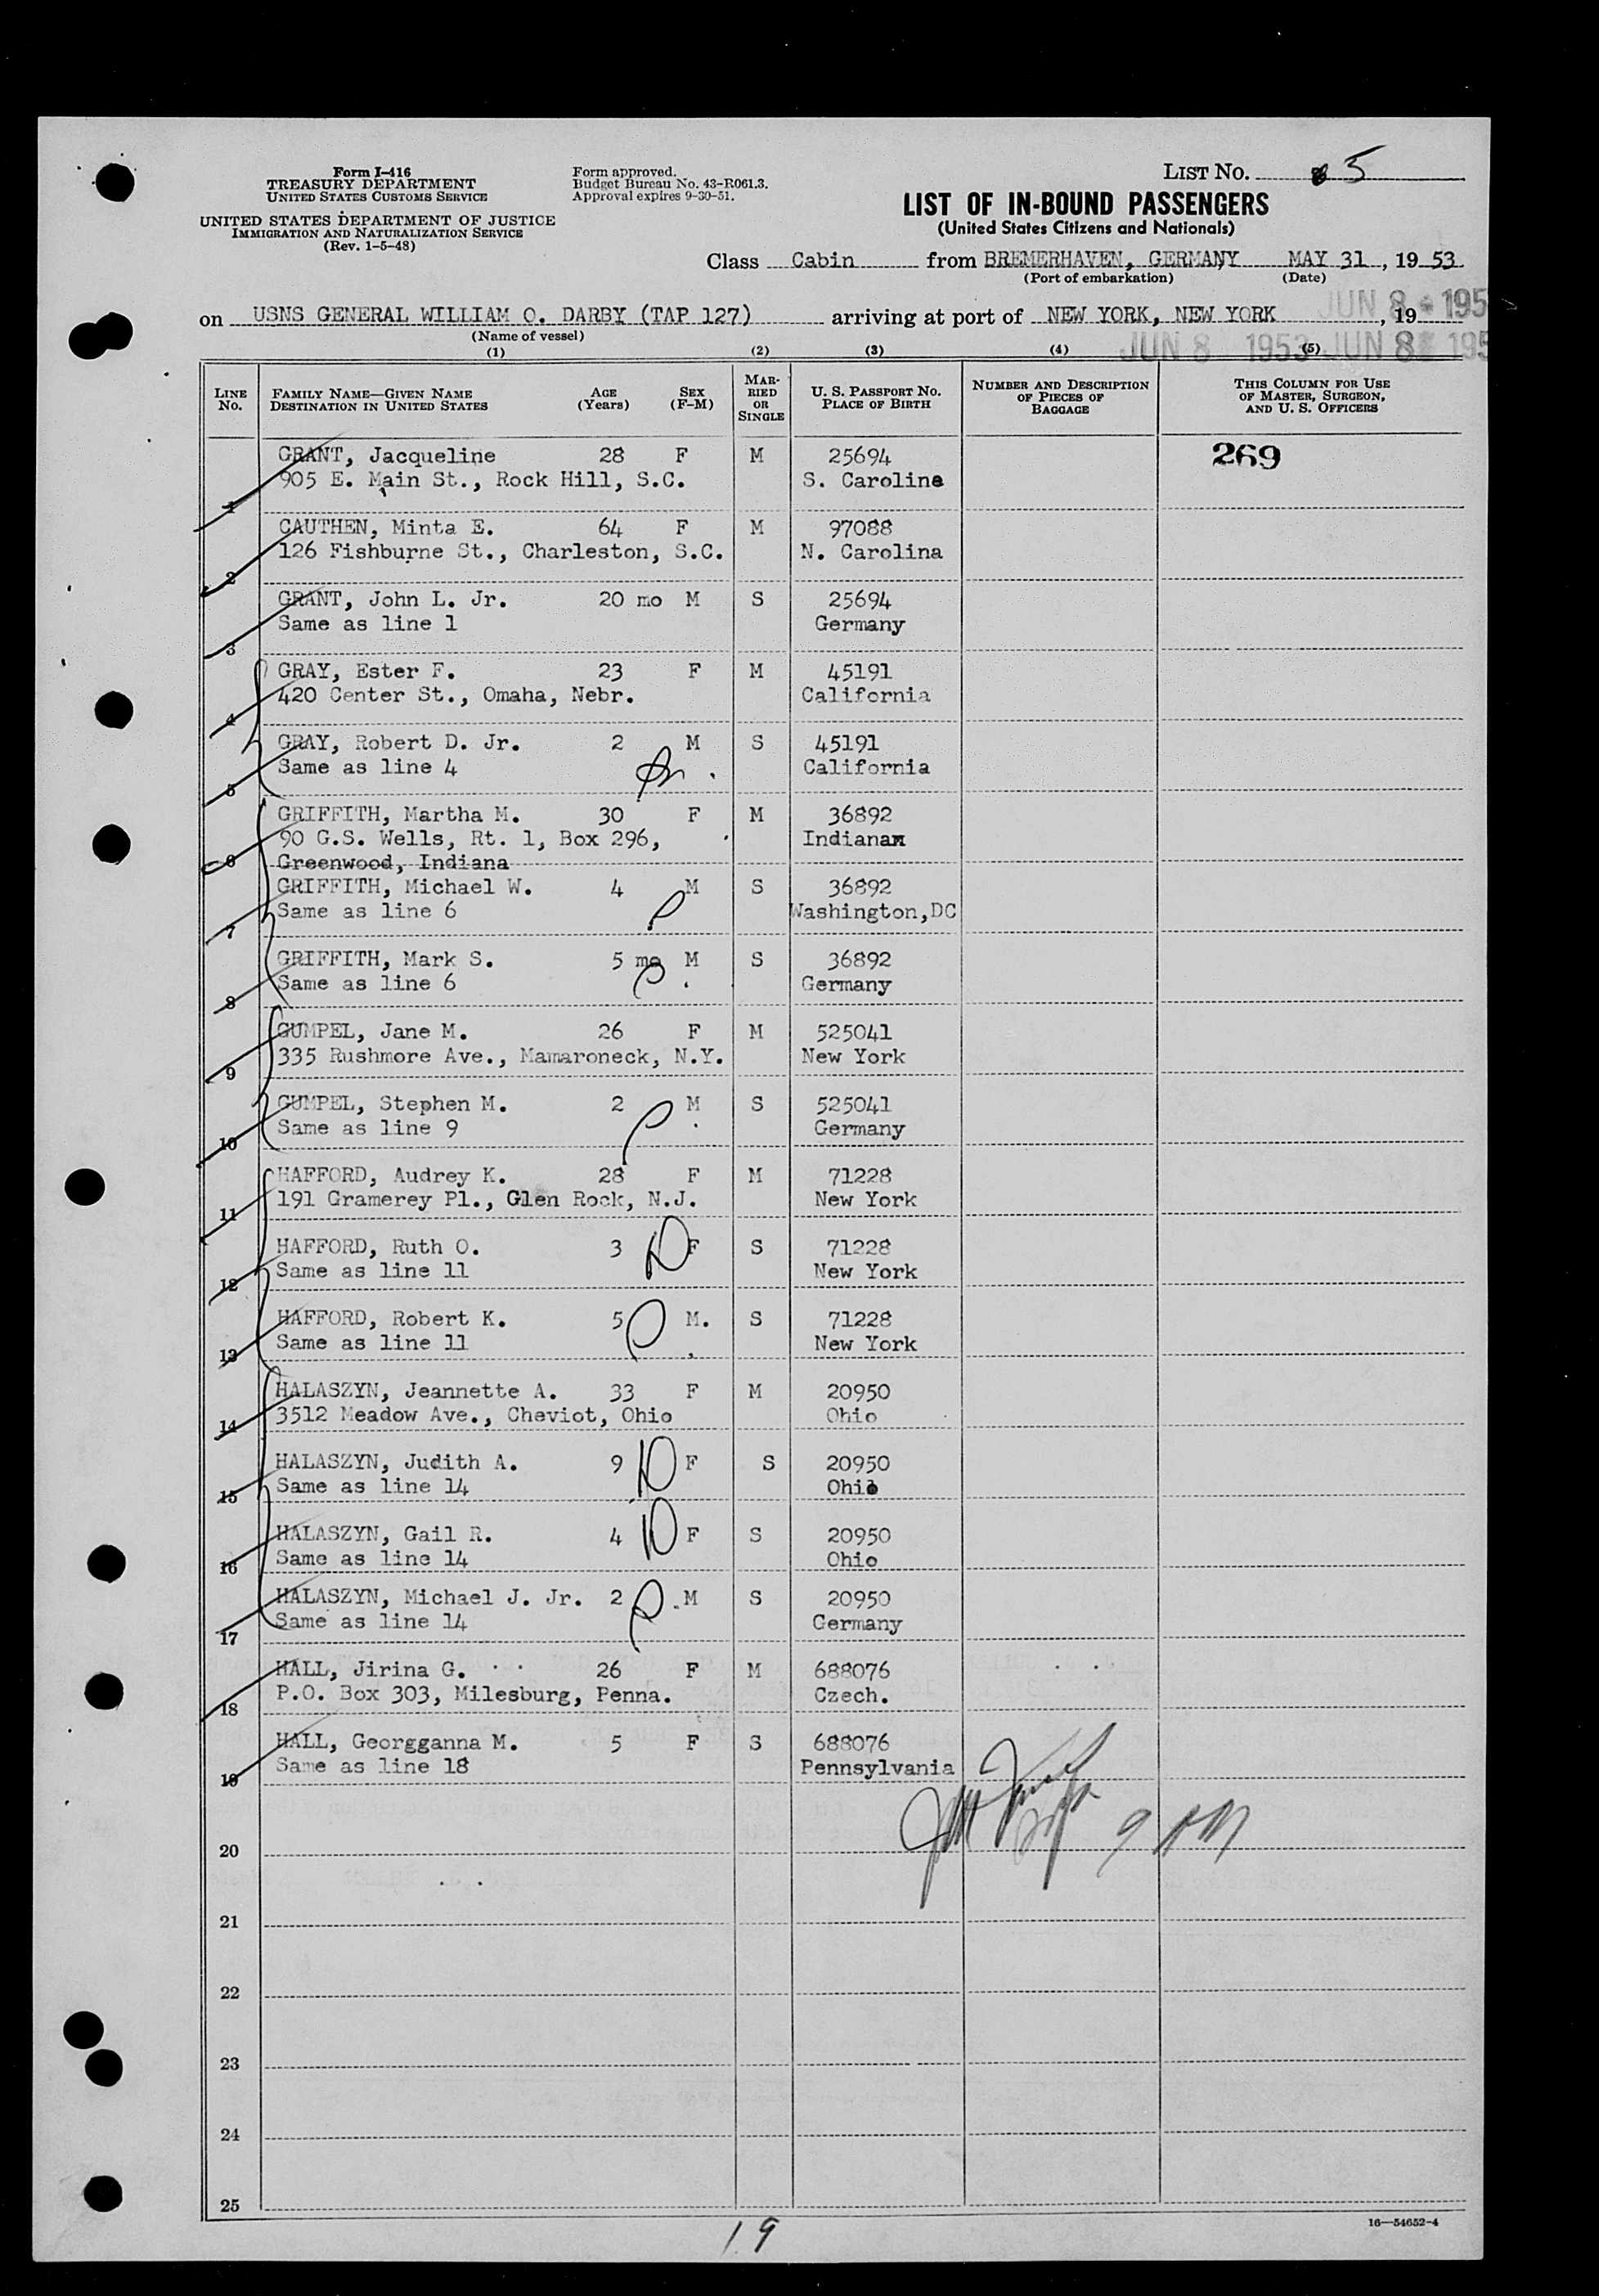 Form I-416
TREASURY DEPARTMENT
UNITED STATES CUSTOMS SERVICE
UNITED STATES DEPARTMENT OF JUSTICE
IMMIGRATION AND NATURALIZATION SERVICE
(Rev. 1-5-48)
Form approved.
Budget Bureau No. 43-R061.3.
Approval expires 9-30-51.
LIST NO. 5
LIST OF IN-BOUND PASSENGERS
(United States Citizens and Nationals)
Class Cabin from BREMERHAVEN, GERMANY MAY 31, 19 53
(Port of embarkation) (Date)
JUN 8 - 195
on USNS GENERAL WILLIAM O. DARBY (TAP 127) arriving at port of NEW YORK, NEW YORK , 19
(Name of vessel)
JUN 8 1953 JUN 8 195
(1) (2) (3) (4) (5)
LINE No. FAMILY NAME—GIVEN NAME DESTINATION IN UNITED STATES AGE (Years) SEX (F-M) MARRIED OR SINGLE U. S. PASSPORT NO. PLACE OF BIRTH NUMBER AND DESCRIPTION OF PIECES OF BAGGAGE THIS COLUMN FOR USE OF MASTER, SURGEON, AND U. S. OFFICERS
GRANT, Jacqueline 28 F M 25694 269
905 E. Main St., Rock Hill, S.C. S. Carolina
1
CAUTHEN, Minta E. 64 F M 97088
126 Fishburne St., Charleston, S.C. N. Carolina
2
GRANT, John L. Jr. 20 mo M S 25694
Same as line 1 Germany
3
GRAY, Ester F. 23 F M 45191
420 Center St., Omaha, Nebr. California
4
GRAY, Robert D. Jr. 2 M S 45191
Same as line 4 California
5
GRIFFITH, Martha M. 30 F M 36892
90 G.S. Wells, Rt. 1, Box 296, Indianax
6 Greenwood, Indiana
GRIFFITH, Michael W. 4 M S 36892
Same as line 6 Washington,DC
7
GRIFFITH, Mark S. 5 mo M S 36892
Same as line 6 Germany
8
GUMPEL, Jane M. 26 F M 525041
335 Rushmore Ave., Mamaroneck, N.Y. New York
9
GUMPEL, Stephen M. 2 M S 525041
Same as line 9 Germany
10
HAFFORD, Audrey K. 28 F M 71228
191 Gramerey Pl., Glen Rock, N.J. New York
11
HAFFORD, Ruth O. 3 F S 71228
Same as line 11 New York
12
HAFFORD, Robert K. 5 M. S 71228
Same as line 11 New York
13
HALASZYN, Jeannette A. 33 F M 20950
3512 Meadow Ave., Cheviot, Ohio Ohio
14
HALASZYN, Judith A. 9 F S 20950
Same as line 14 Ohio
15
HALASZYN, Gail R. 4 F S 20950
Same as line 14 Ohio
16
HALASZYN, Michael J. Jr. 2 M S 20950
Same as line 14 Germany
17
HALL, Jirina G. 26 F M 688076
P.O. Box 303, Milesburg, Penna. Czech.
18
HALL, Georgganna M. 5 F S 688076
Same as line 18 Pennsylvania
19
20
21
22
23
24
25
16—54652-4
19